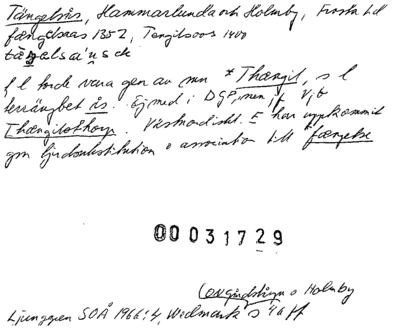 Tängelsås, Hammarlunda och Holmby, Frosta hd
fængelsaas 1352, Tengilsoos 1400
tæŋelsa'u̯sck
f l torde vara gen av mn *Thængil, s l
terrängbet ås. Ej med i DGP, men jf Vjb
Thængilsthorp. Västnordiskt. F har uppkommit
gm ljudsubstitution o association till fængelse
00031729
Ljunggren SOÅ 1966:4, Widmark s 46 ff
o Holmby